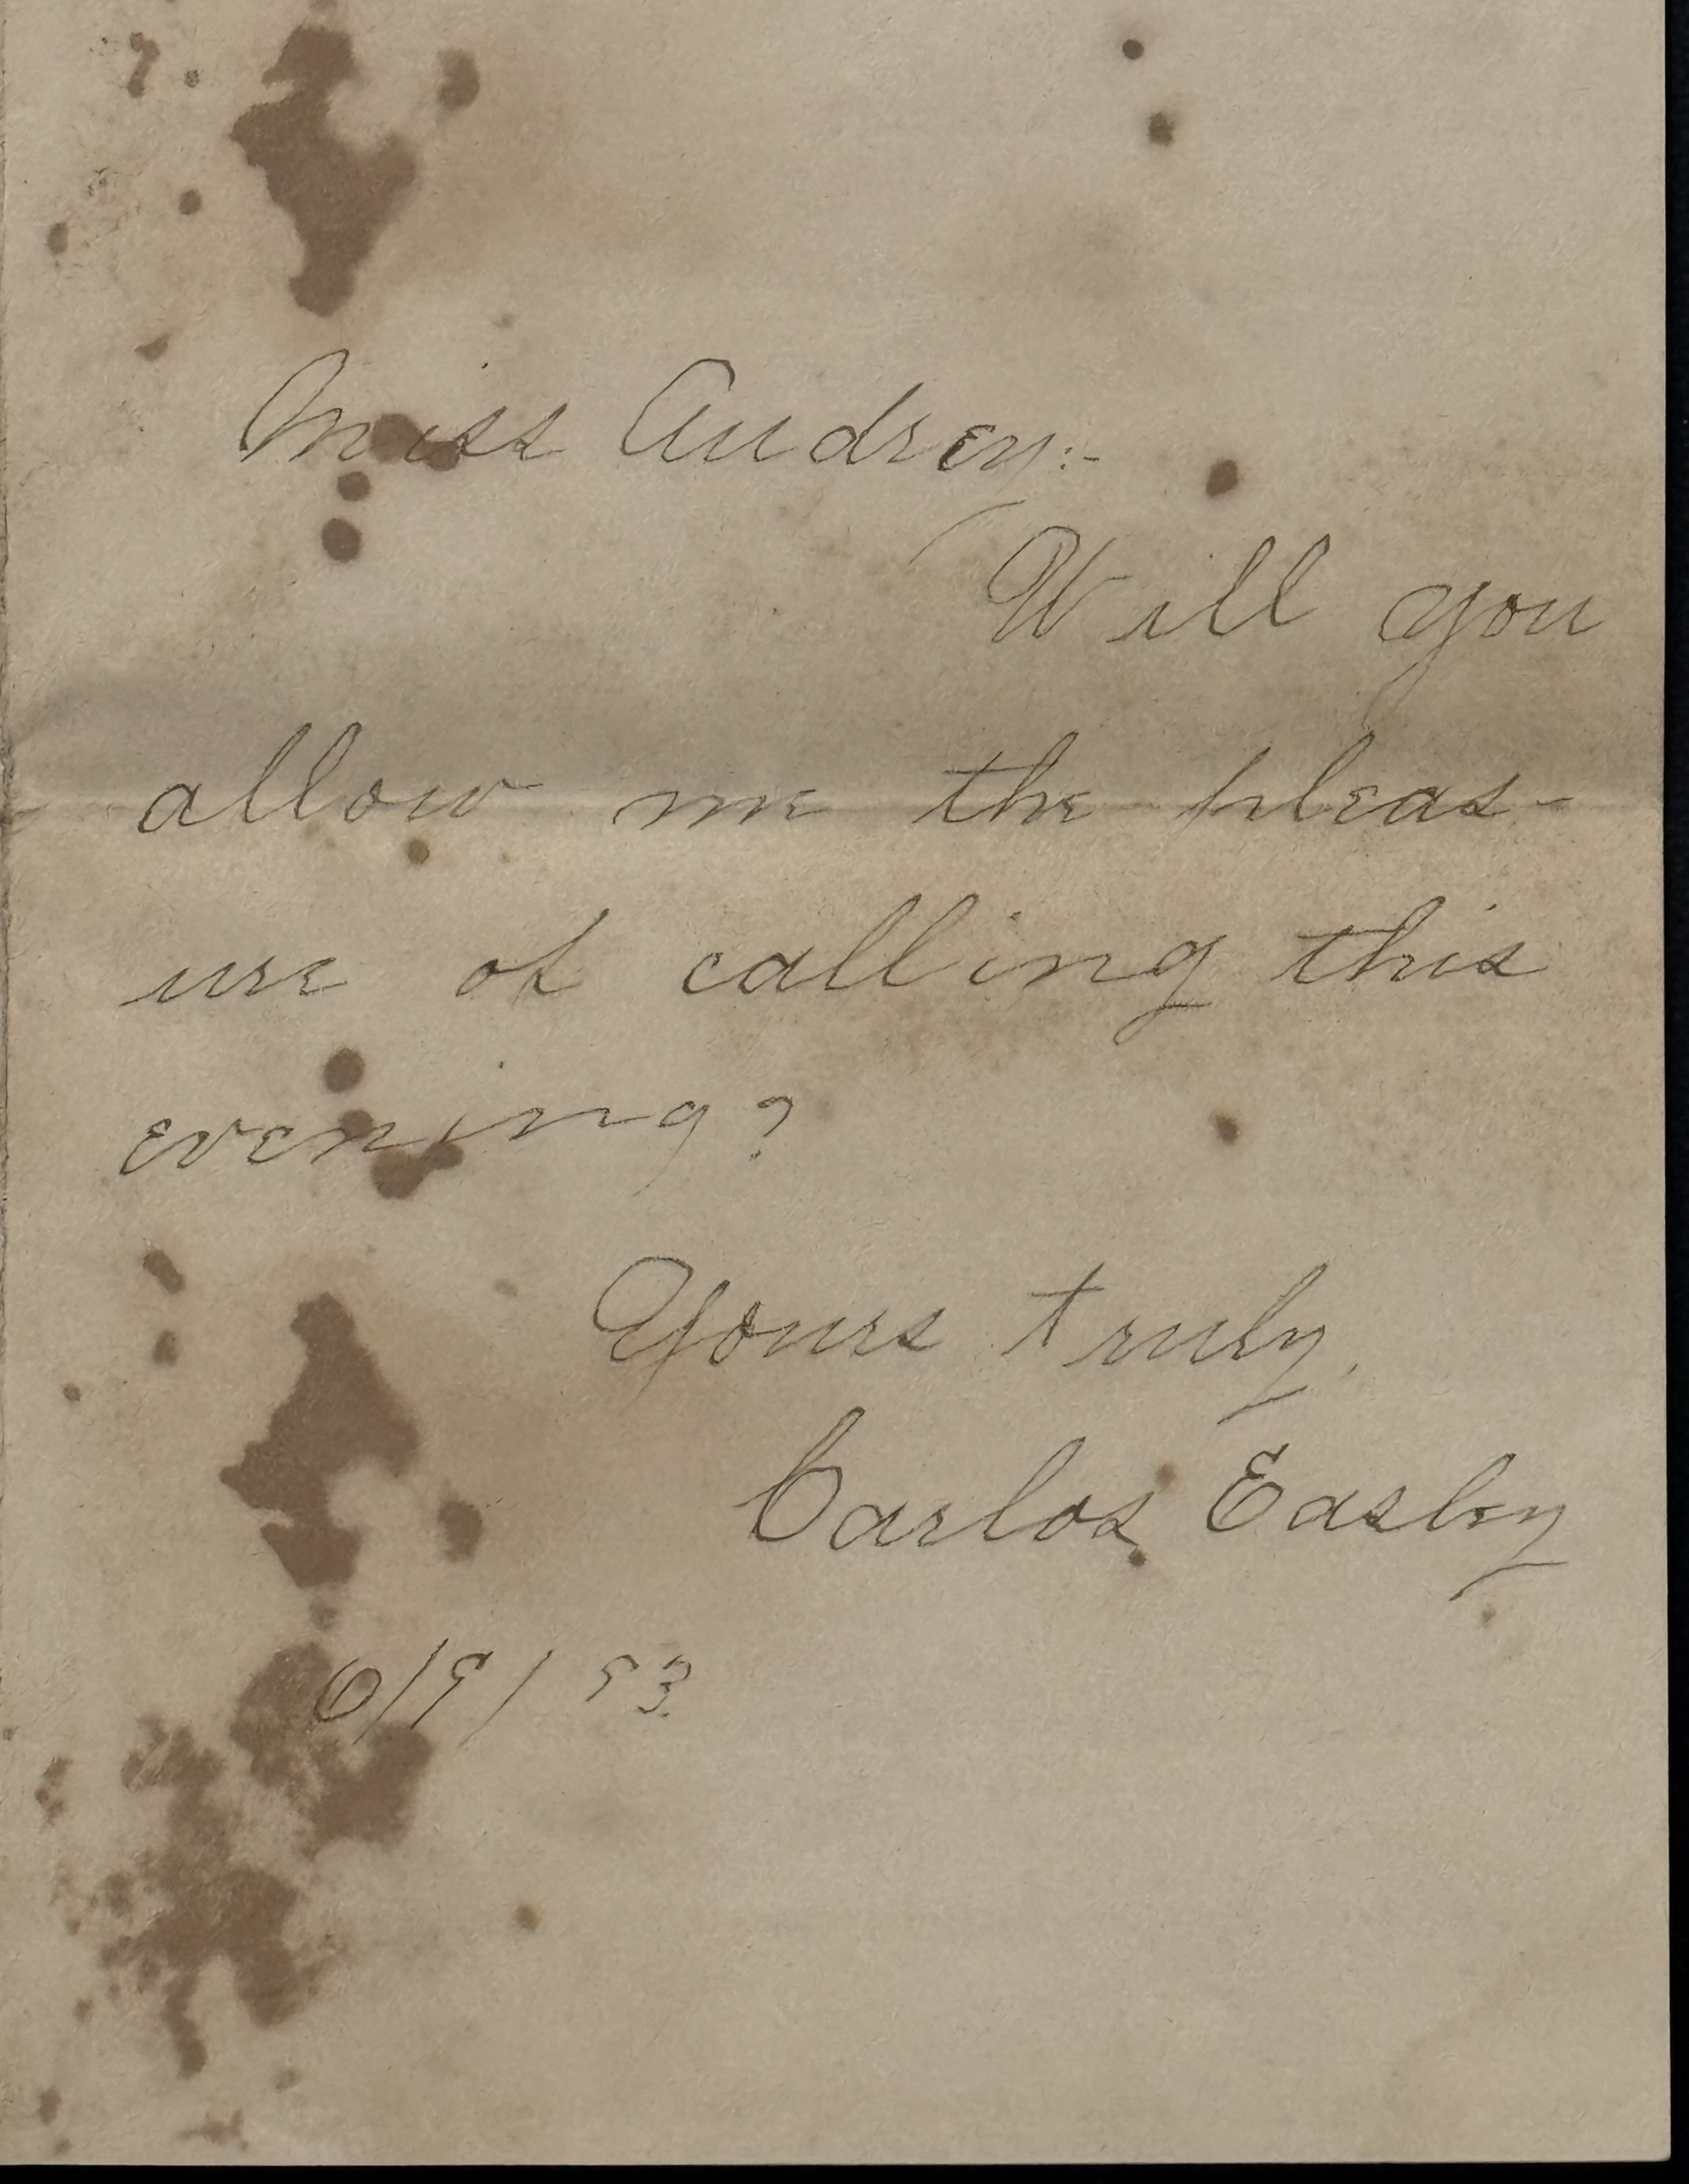 Miss Audrey:-
Will you
allow me the pleas-
ure of calling this
evening?
Yours truly,
Carlos Easley
6/9/93